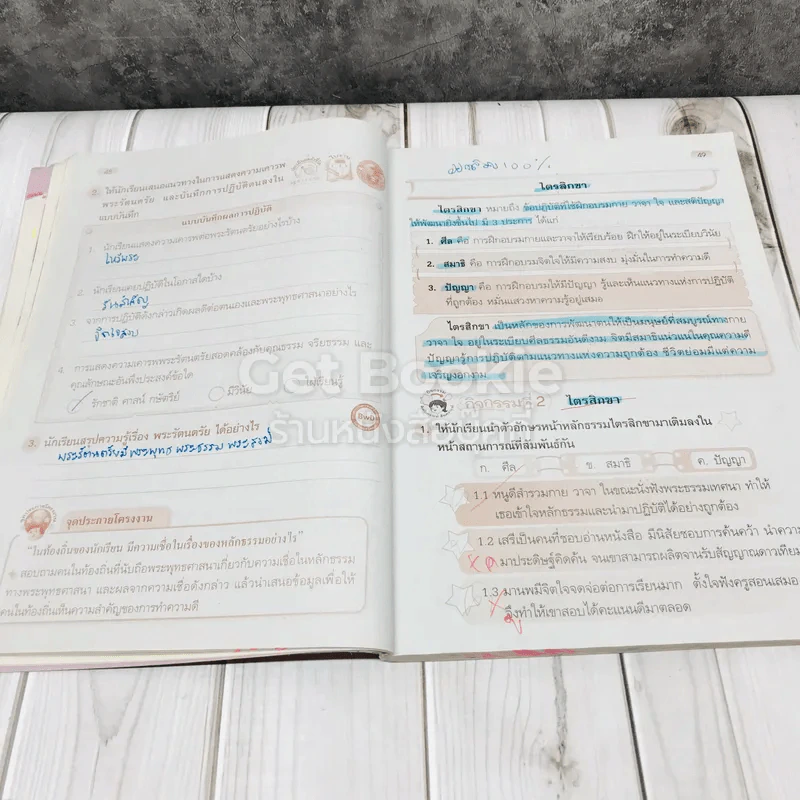 2. ให้นักเรียนเสนอแนวทางในการแสดงความเคารพ
พระรัตนตรัย และบันทึกการปฏิบัติตนลงใน
แบบบันทึก
แบบบันทึกผลการปฏิบัติ
1. นักเรียนแสดงความเคารพต่อพระรัตนตรัยอย่างไรบ้าง
ไหว้พระ
2. นักเรียนเคยปฏิบัติในโอกาสใดบ้าง
วันสำคัญ
3. จากการปฏิบัติดังกล่าวเกิดผลดีต่อตนเองและพระพุทธศาสนาอย่างไร
จิตใจสงบ
4. การแสดงความเคารพพระรัตนตรัยสอดคล้องกับคุณธรรม จริยธรรม และ
คุณลักษณะอันพึงประสงค์ข้อใด
รักชาติ ศาสน์ กษัตริย์ มีวินัย ใฝ่เรียนรู้
3. นักเรียนสรุปความรู้เรื่อง พระรัตนตรัย ได้อย่างไร
พระรัตนตรัยมี พระพุทธ พระธรรม พระสงฆ์
จุดประกายโครงงาน
"ในท้องถิ่นของนักเรียน มีความเชื่อในเรื่องของหลักกรรมอย่างไร"
สอบถามคนในท้องถิ่นที่นับถือพระพุทธศาสนาเกี่ยวกับความเชื่อในหลักกรรม
ทางพระพุทธศาสนา และผลจากความเชื่อดังกล่าว แล้วนำเสนอข้อมูลเพื่อให้
คนในท้องถิ่นเห็นความสำคัญของการทำความดี
100%
ไตรสิกขา
ไตรสิกขา หมายถึง ข้อปฏิบัติที่ใช้ฝึกอบรมกาย วาจา ใจ และสติปัญญา
ให้พัฒนายิ่งขึ้นไป มี 3 ประการ ได้แก่
1. ศีล คือ การฝึกอบรมกายและวาจาให้เรียบร้อย ฝึกให้อยู่ในระเบียบวินัย
2. สมาธิ คือ การฝึกอบรมจิตใจให้มีความสงบ มุ่งมั่นในการทำความดี
3. ปัญญา คือ การฝึกอบรมให้มีปัญญา รู้และเห็นแนวทางแห่งการปฏิบัติ
ที่ถูกต้อง หมั่นแสวงหาความรู้อยู่เสมอ
ไตรสิกขา เป็นหลักของการพัฒนาตนให้เป็นมนุษย์ที่สมบูรณ์ทางกาย
วาจา ใจ อยู่ในระเบียบศีลธรรมอันดีงาม จิตมีสมาธิแน่วแน่ในคุณความดี
ปัญญารู้การปฏิบัติตามแนวทางแห่งความถูกต้อง ชีวิตย่อมมีแต่ความ
เจริญงอกงาม
Get Bookie
ร้านหนังสือ
กิจกรรมที่ 2 ไตรสิกขา
1. ให้นักเรียนนำตัวอักษรหน้าหลักธรรมไตรสิกขามาเติมลงใน
หน้าสถานการณ์ที่สัมพันธ์กัน
ก. ศีล ข. สมาธิ ค. ปัญญา
1.1 หนูดีสำรวมกาย วาจา ในขณะนั่งฟังพระธรรมเทศนา ทำให้
เธอเข้าใจหลักธรรมและนำมาปฏิบัติได้อย่างถูกต้อง
1.2 เสรีเป็นคนที่ชอบอ่านหนังสือ มีนิสัยชอบการค้นคว้า นำความ
มาประดิษฐ์คิดค้น จนเขาสามารถผลิตจานรับสัญญาณดาวเทียม
1.3 มานพมีจิตใจจดจ่อต่อการเรียนมาก ตั้งใจฟังครูสอนเสมอ
จึงทำให้เขาสอบได้คะแนนดีมาตลอด